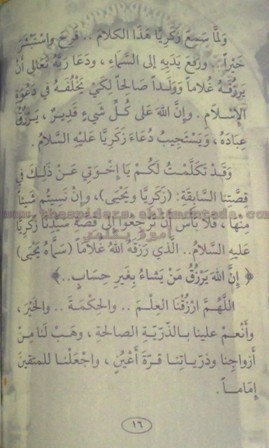 وَلَمَّا سَمِعَ زَكَرِيَّا هَذَا الْكَلَامَ .. فَرِحَ وَاسْتَبْشَرَ
خَيْراً .. وَرَفَعَ يَدَيْهِ إِلَى السَّمَاءِ ، وَدَعَا رَبَّهُ تَعَالَى أَنْ
يَرْزُقَهُ غُلَاماً وَوَلَداً صَالِحاً لِكَيْ يَخْلُفَهُ فِي دَعْوَةِ
الْإِسْلَامِ . وَإِنَّ اللهَ عَلَى كُلِّ شَيْءٍ قَدِيرٌ ، يَرْزُقُ
عِبَادَهُ ، وَيَسْتَجِيبُ دُعَاءَ زَكَرِيَّا عَلَيْهِ السَّلَامُ .
وَقَدْ تَكَلَّمْتُ لَكُمْ يَا إِخْوَتِي عَنْ ذَلِكَ فِي
قِصَّتِنَا السَّابِقَةِ : (زَكَرِيَّا وَيَحْيَى) ، وَإِنْ نَسِيتُمْ شَيْئاً
مِنْهَا ، فَلَا بَأْسَ أَنْ تَرْجِعُوا إِلَى قِصَّةِ سَيِّدِنَا زَكَرِيَّا
عَلَيْهِ السَّلَامُ .. الَّذِي رَزَقَهُ اللهُ غُلَاماً (سَمَّاهُ يَحْيَى)
﴿ إِنَّ اللهَ يَرْزُقُ مَنْ يَشَاءُ بِغَيْرِ حِسَابٍ .. ﴾
اللَّهُمَّ ارْزُقْنَا الْعِلْمَ .. وَالْحِكْمَةَ .. وَالْخَيْرَ ،
وَأَنْعِمْ عَلَيْنَا بِالذُّرِّيَّةِ الصَّالِحَةِ ، وَهَبْ لَنَا مِنْ
أَزْوَاجِنَا وَذُرِّيَّاتِنَا قُرَّةَ أَعْيُنٍ ، وَاجْعَلْنَا لِلْمُتَّقِينَ
إِمَاماً .
١٦